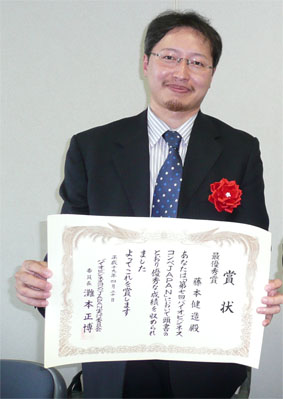 賞状
最優秀賞
藤本健造殿
あなたは"第七回バイオビジネス
コンペJAPAN"において頭書の
とおり優秀な成績を収められ
ました
よってこれを賞します
平成十九年四月二十日
バイオビジネスコンペJAPAN実行委員会
委員長 灘本正博